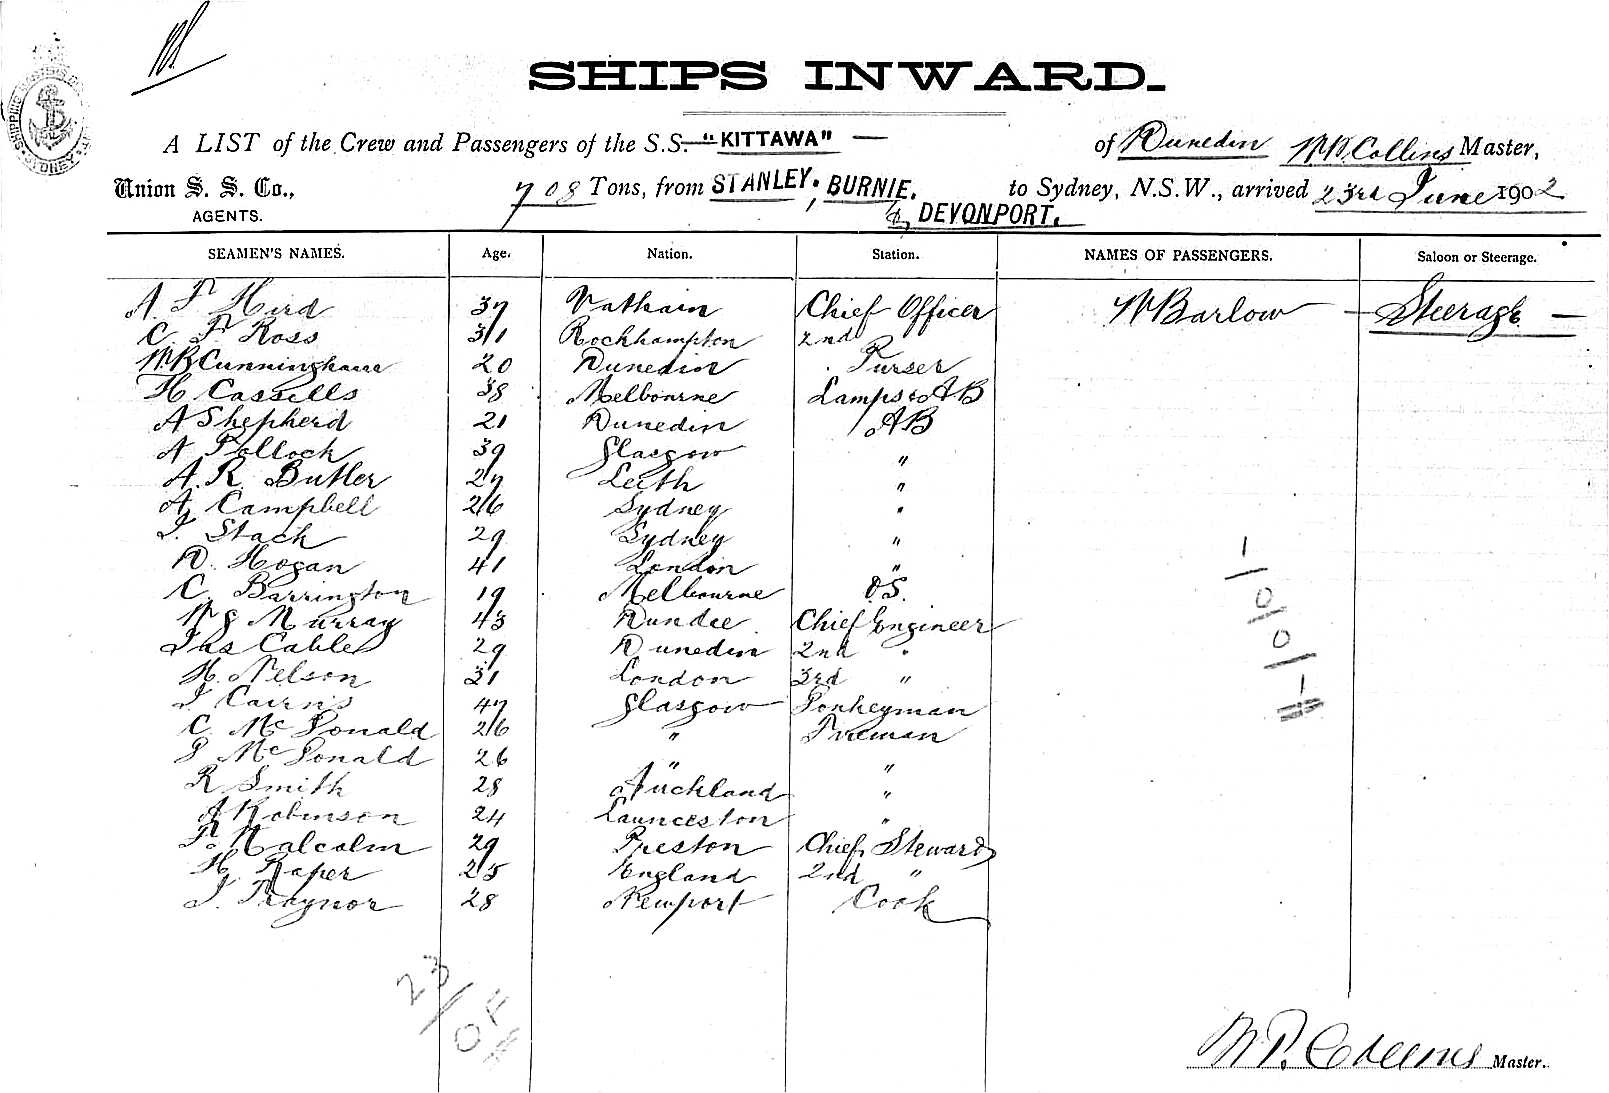 SHIPS INWARD.
A LIST of the Crew and Passengers of the S.S. "KITTAWA" of Dunedin W.P. Collins Master,
Union S. S. Co., 708 Tons, from STANLEY, BURNIE. to Sydney, N.S.W., arrived 23rd June 1902
AGENTS. & DEVONPORT.
SEAMEN'S NAMES. Age. Nation. Station. NAMES OF PASSENGERS. Saloon or Steerage.
A. F. Hird 37 Chief Officer W Barlow — Steerage —
C. F. Ross 31 Rockhampton 2nd
W.B Cunninghame 20 Dunedin Purser
H Cassells 38 Melbourne Lamps & AB
A Shepherd 21 Dunedin AB
A Pollock 39 Glasgow "
A. R. Butler 27 Leith "
A. Campbell 26 Sydney "
J. Stack 29 Sydney "
D. Hogan 41 London "
C. Barrington 19 Melbourne O.S.
W S Murray 43 Dundee Chief Engineer
Jas Cable 29 Dunedin 2nd "
H. Nelson 31 London 3rd "
J Cairns 47 Glasgow Donkeyman
C. McDonald 26 " Fireman
P McDonald 26 " "
R Smith 28 Auckland "
A Robinson 24 Launceston "
P. Malcolm 29 Preston Chief Steward
H. Raper 25 England 2nd "
J. Traynor 28 Newport Cook
23/0F
W.P. Collins Master.